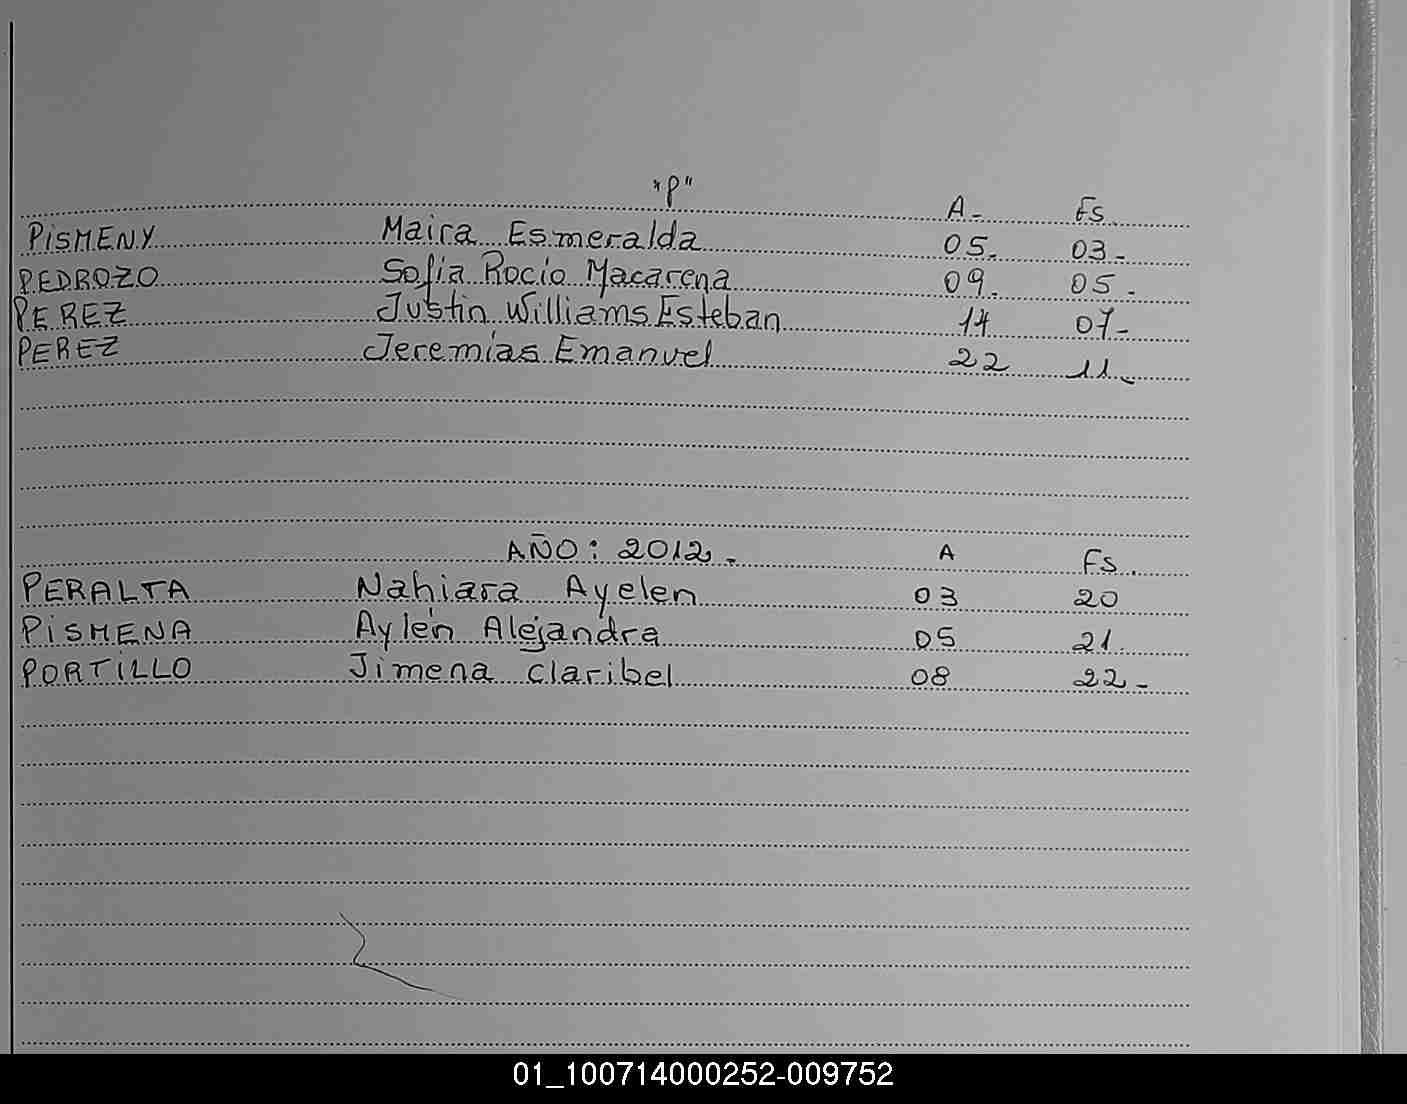 "P"
A- Fs.
PISMENY Maira Esmeralda 05. 03-
PEDROZO Sofia Rocio Macarena 09. 05-
PEREZ Justin Williams Esteban 14 07-
PEREZ Jeremías Emanuel 22 11-
AÑO: 2012- A Fs.
PERALTA Nahiara Ayelen 03 20
PISMENA Aylén Alejandra 05 21.
PORTILLO Jimena Claribel 08 22-
01_100714000252-009752